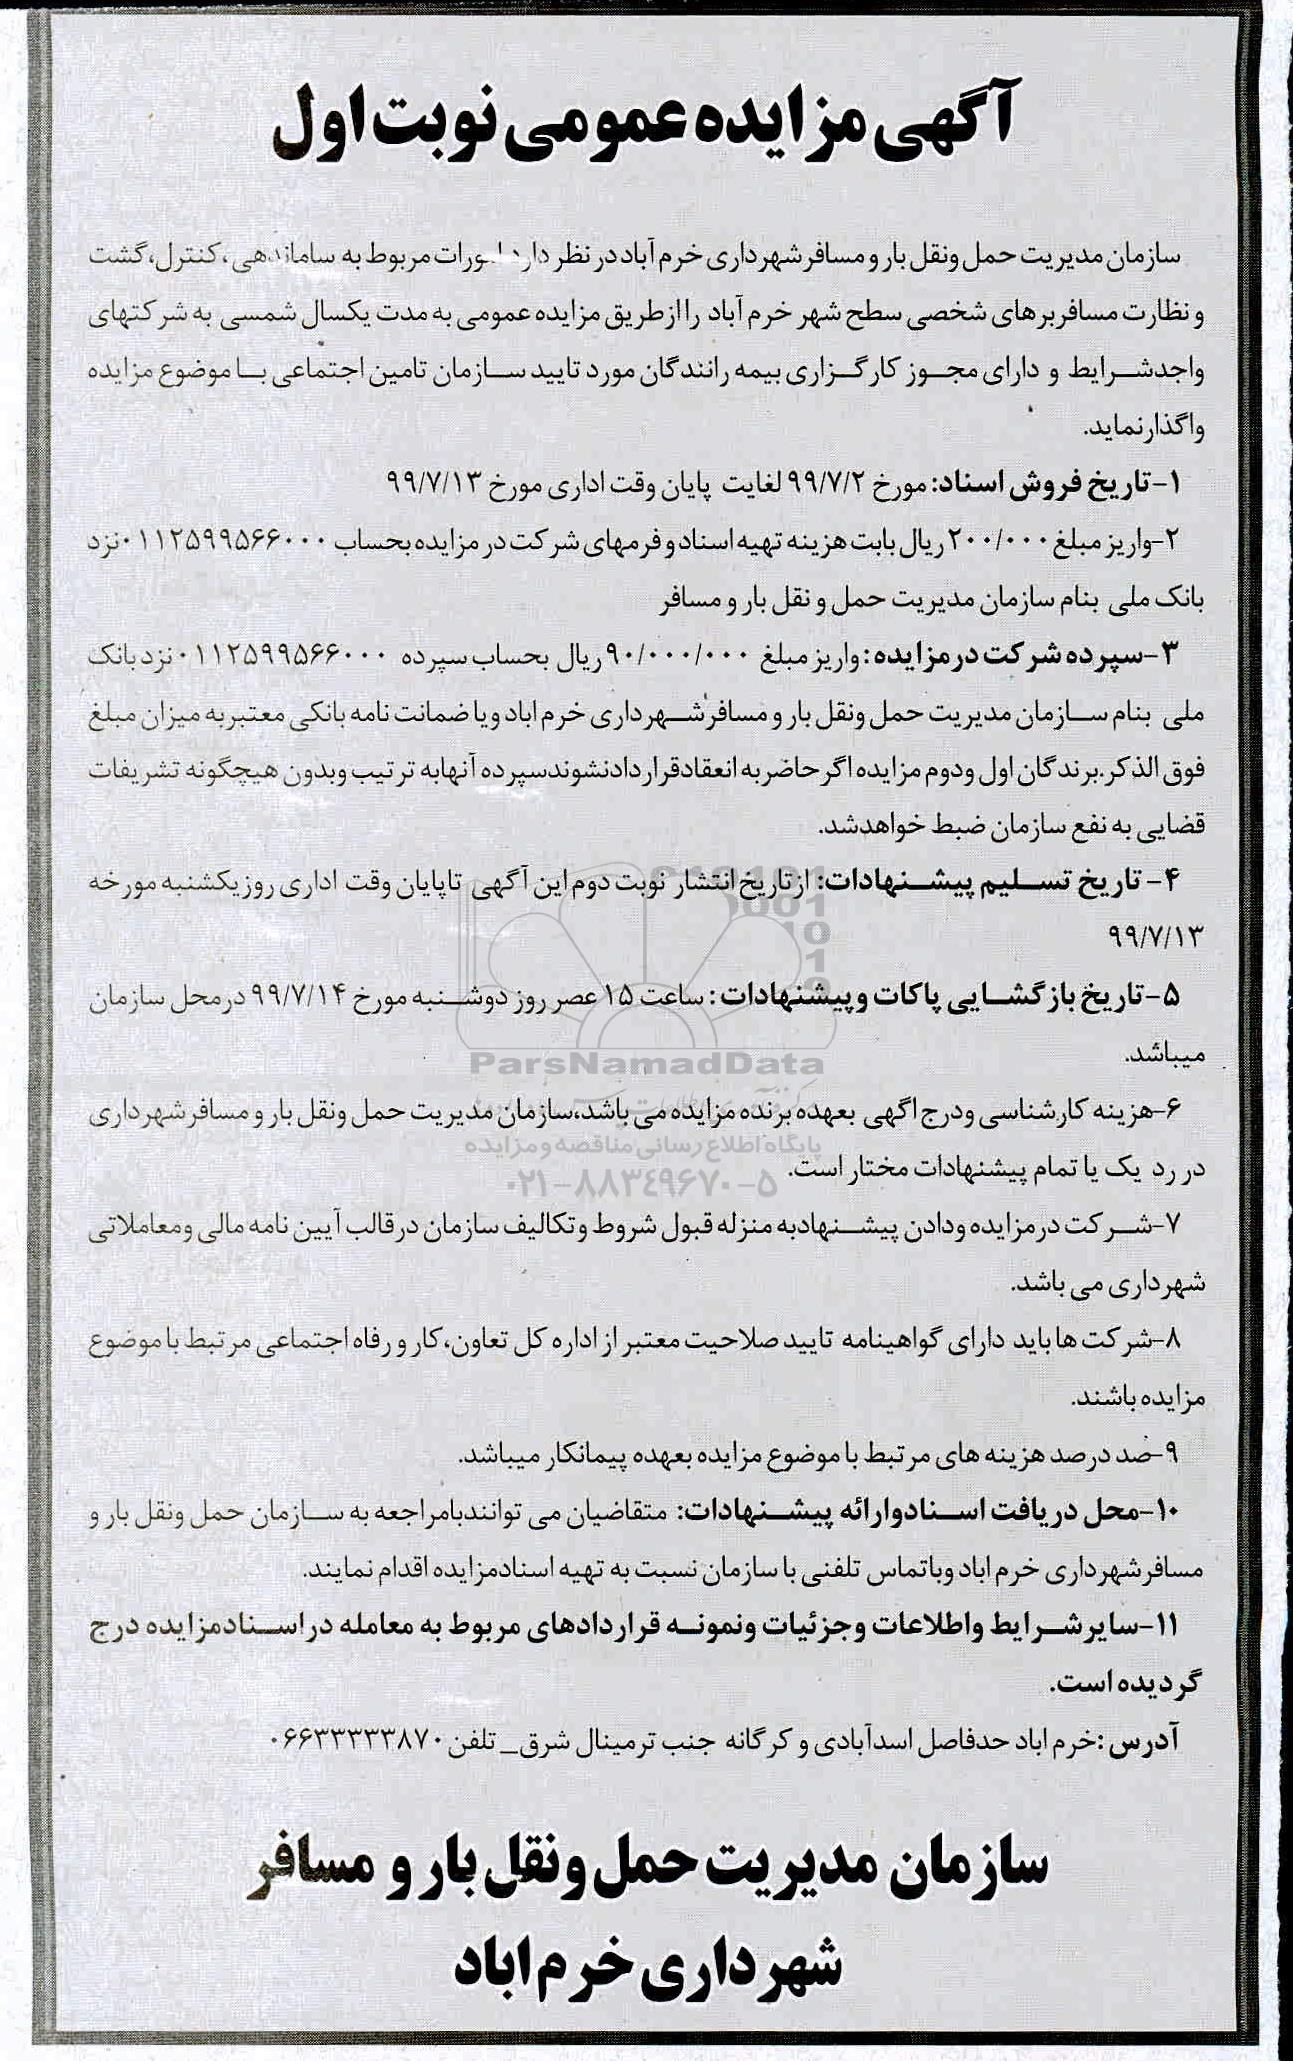 آگهی مزایده عمومی نوبت اول
سازمان مدیریت حمل ونقل بار و مسافر شهرداری خرم آباد در نظر دارد امورات مربوط به ساماندهی ، کنترل، گشت
و نظارت مسافربرهای شخصی سطح شهر خرم آباد را ازطریق مزایده عمومی به مدت یکسال شمسی به شرکتهای
واجدشرایط و دارای مجوز کارگزاری بیمه رانندگان مورد تایید سازمان تامین اجتماعی با موضوع مزایده
واگذارنماید.
۱-تاریخ فروش اسناد: مورخ ۹۹/۷/۲ لغایت پایان وقت اداری مورخ ۹۹/۷/۱۳
۲-واریز مبلغ ۲۰۰/۰۰۰ ریال بابت هزینه تهیه اسناد و فرمهای شرکت در مزایده بحساب ۰۱۱۲۵۹۹۵۶۶۰۰۰ نزد
بانک ملی بنام سازمان مدیریت حمل و نقل بار و مسافر
۳-سپرده شرکت درمزایده: واریز مبلغ ۹۰/۰۰۰/۰۰۰ ریال بحساب سپرده ۰۱۱۲۵۹۹۵۶۶۰۰۰ نزد بانک
ملی بنام سازمان مدیریت حمل ونقل بار و مسافر شهرداری خرم اباد ویا ضمانت نامه بانکی معتبر به میزان مبلغ
فوق الذکر.برندگان اول ودوم مزایده اگر حاضر به انعقاد قرار داد نشوند سپرده آنها به ترتیب وبدون هیچگونه تشریفات
قضایی به نفع سازمان ضبط خواهدشد.
۴- تاریخ تسلیم پیشنهادات: ازتاریخ انتشار نوبت دوم این آگهی تاپایان وقت اداری روز یکشنبه مورخه
۹۹/۷/۱۳
۵-تاریخ بازگشایی پاکات وپیشنهادات: ساعت ۱۵ عصر روز دوشنبه مورخ ۹۹/۷/۱۴ درمحل سازمان
میباشد.
ParsNamadData
۶-هزینه کارشناسی ودرج اگهی بعهده برنده مزایده می باشد،سازمان مدیریت حمل ونقل بار و مسافر شهرداری
پایگاه اطلاع رسانی مناقصه و مزایده
در رد یک یا تمام پیشنهادات مختار است.
۰۲۱-۸۸۳۴۹۶۷۰-۵
۷-شرکت درمزایده ودادن پیشنهاد به منزله قبول شروط وتکالیف سازمان درقالب آیین نامه مالی ومعاملاتی
شهرداری می باشد.
۸-شرکت ها باید دارای گواهینامه تایید صلاحیت معتبر از اداره کل تعاون، کار و رفاه اجتماعی مرتبط با موضوع
مزایده باشند.
۹-صد درصد هزینه های مرتبط با موضوع مزایده بعهده پیمانکار میباشد.
۱۰-محل دریافت اسنادوارائه پیشنهادات: متقاضیان می توانندبامراجعه به سازمان حمل ونقل بار و
مسافر شهرداری خرم اباد وباتماس تلفنی با سازمان نسبت به تهیه اسنادمزایده اقدام نمایند.
۱۱-سایرشرایط واطلاعات وجزئیات ونمونه قراردادهای مربوط به معامله در اسنادمزایده درج
گردیده است.
آدرس :خرم اباد حدفاصل اسدآبادی و کرگانه جنب ترمینال شرق_ تلفن ۰۶۶۳۳۳۳۳۸۷۰
سازمان مدیریت حمل ونقل بار و مسافر
شهرداری خرم اباد